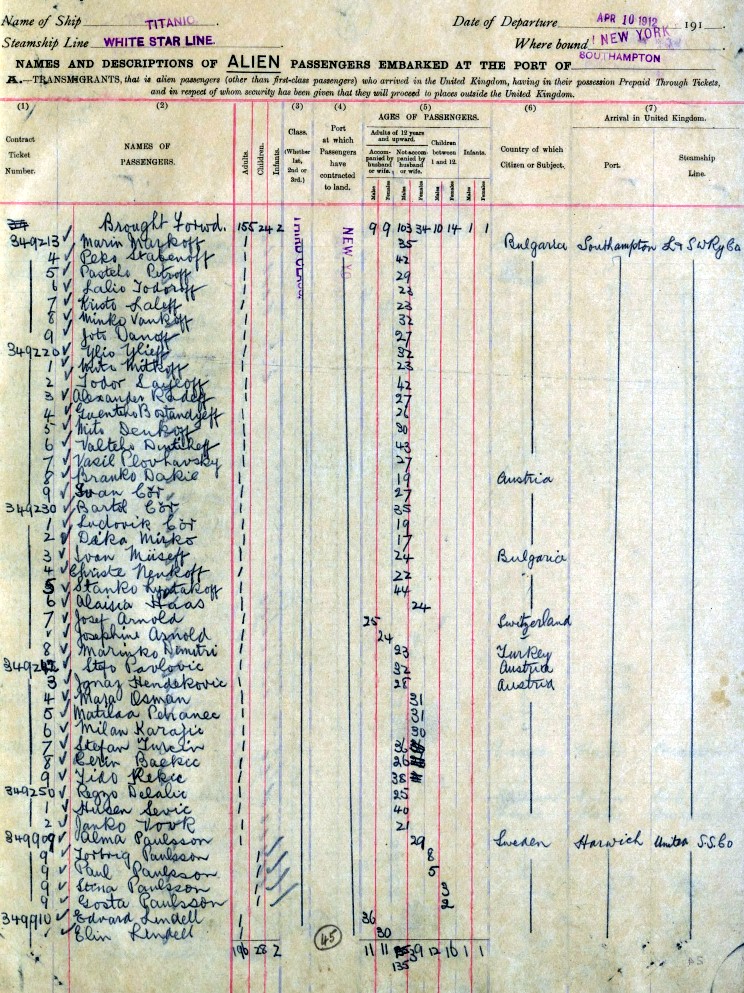 Name of Ship TITANIC Date of Departure APR 10 1912 191
Steamship Line WHITE STAR LINE. Where bound NEW YORK
NAMES AND DESCRIPTIONS OF ALIEN PASSENGERS EMBARKED AT THE PORT OF SOUTHAMPTON
A.—TRANSMIGRANTS, that is alien passengers (other than first-class passengers) who arrived in the United Kingdom, having in their possession Prepaid Through Tickets,
and in respect of whom security has been given that they will proceed to places outside the United Kingdom.
(1) (2) (3) (4) (5) (6) (7)
Contract Ticket Number. NAMES OF PASSENGERS. Adults. Children. Infants. Class. (Whether 1st, 2nd or 3rd.) Port at which Passengers have contracted to land. AGES OF PASSENGERS. Country of which Citizen or Subject. Arrival in United Kingdom.
Adults of 12 years and upward. Children between 1 and 12. Infants. Port. Steamship Line.
Accompanied by husband or wife. Not accompanied by husband or wife.
Males Females Males Females Males Females Males Females
Brought Forwd. 155 24 2 9 9 103 34 10 14 1 1
THIRD CLASS NEW YO
349213 Marin Markoff 1 35 Bulgaria Southampton L & S W Ry Co
4 Peko Stabenoff 1 42
5 Pastcho Petroff 1 29
6 Lalio Todoroff 1 23
7 Kristo Laleff 1 23
8 Minko Vankoff 1 32
9 Joto Danoff 1 27
349220 Ylio Ylieff 1 32
1 Mito Mitkoff 1 23
2 Todor 1 42
3 Alexander Radeff 1 27
4 Guentcho Bostandyeff 1 26
5 Mito Denkoff 1 30
6 Valtcho 1 43
7 Vasil Plovhavsky 1 27
8 Branko Dakic 1 19 Austria
9 Ivan Cör 1 27
349230 Bartol Cör 1 35
1 Ludovik Cör 1 19
2 Deka Mirko 1 17
3 Ivan Miseff 1 24 Bulgaria
4 Christe Nenkoff 1 22
5 Stanko 1 44
6 Aloisia Haas 1 24
7 Josef Arnold 1 25 Switzerland
Josephine Arnold 1 24
8 Marinko Dimitri 1 23 Turkey
Stefo Pavlovic 1 32 Austria
3 Ignaz Hendekovic 1 28 Austria
4 Mara Osman 1 31
5 Matilda Pehanec 1 31
6 Milan Karajic 1 30
7 Stefan Turcin 1 36
8 Cerin Backic 1 26
9 Tido Kekic 1 38
349250 Regzo Delalic 1 25
1 Husen Sevic 1 40
2 Janko Vovk 1 21
349909 Alma Paulsson 1 29 Sweden Harwich United S.S. Co
9 Torbrig Paulsson 1 8
9 Paul Paulsson 1 5
9 Stina Paulsson 1 3
9 Gosta Paulsson 1 2
349910 Edvard Lindell 1 36
Elin Lindell 1 30
190 28 2 45 11 11 39 12 16 1 1
135